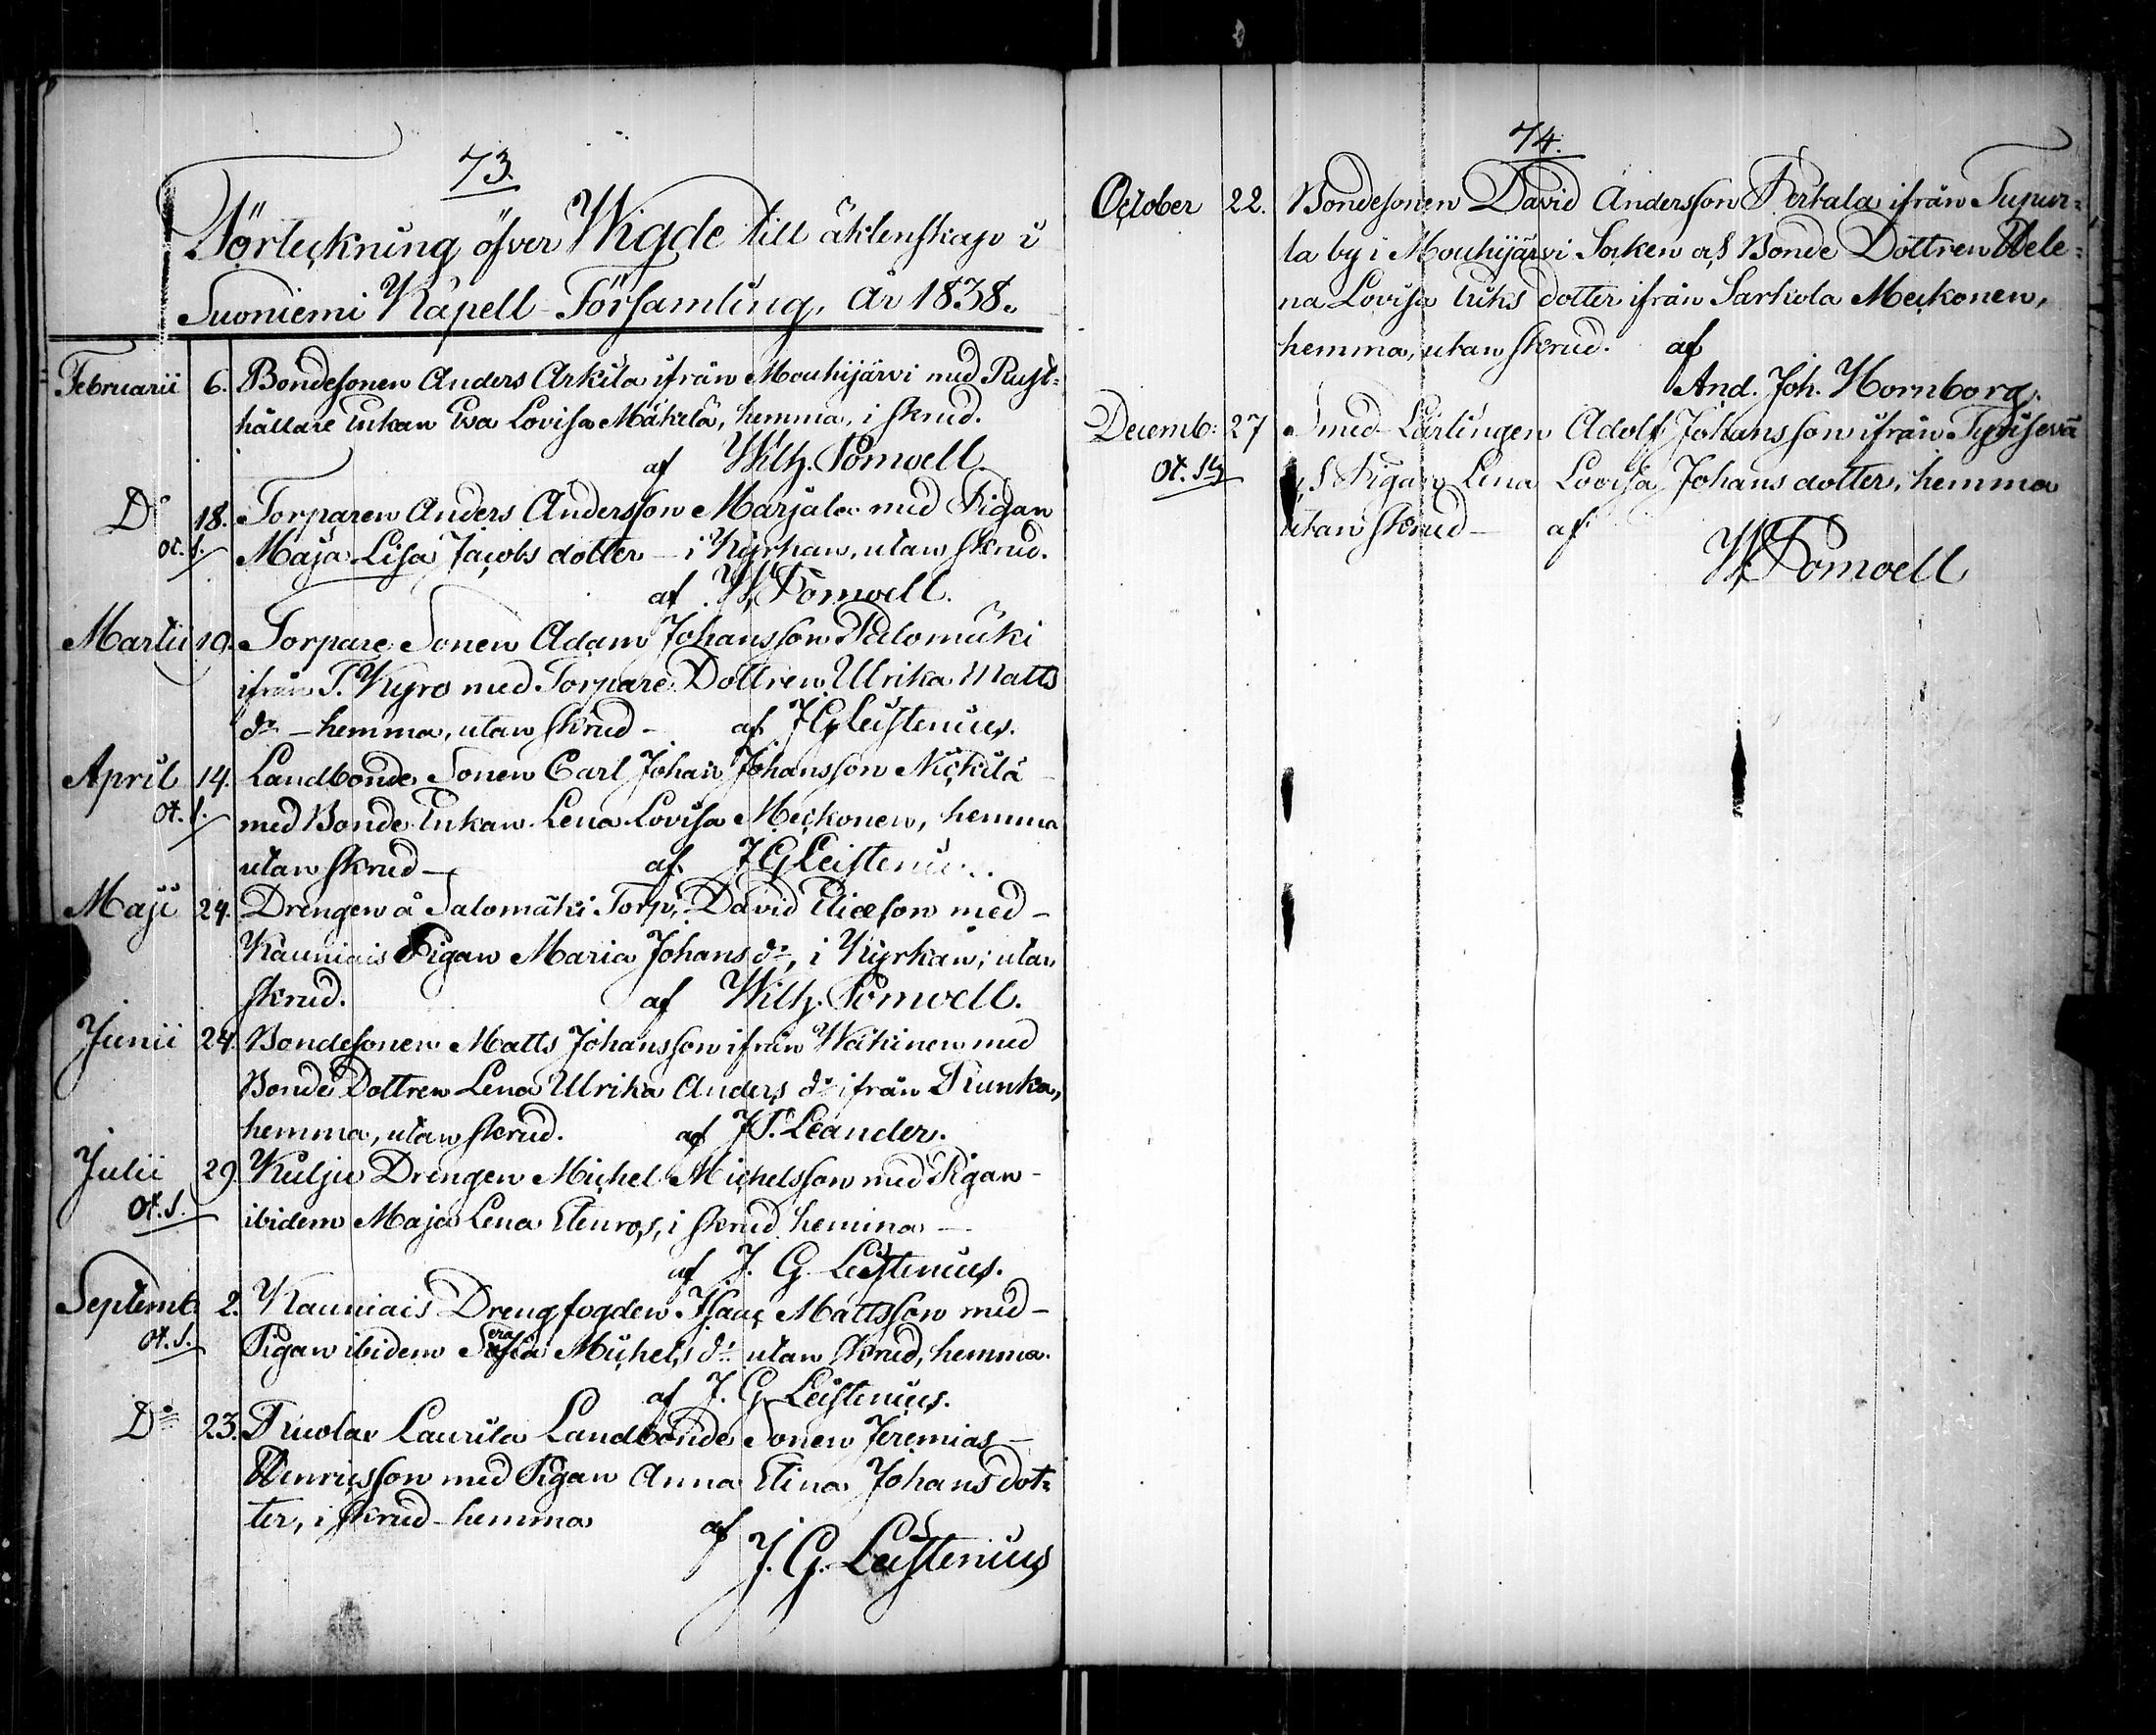 73.
Förteckning öfver Wigde till äktenskap i
Suoniemi Kapell-Församling, År 1838.
Februarii 6. Bondesonen Anders Arkila ifrån Mouhijärvi med Rust=
hållare Enkan Eva Lovisa Mäkelä, hemma, i skrud.
af Wilh. Pomoell
Do 18. Torparen Anders Andersson Marjala med Pigan
ot. s. Maja Lisa Jacobs dotter - i Kyrkan, utan skrud.
af W. Pomoell.
Martii 19. Torpare Sonen Adam Johansson Palomäki
ifrån T. Kyro med Torpare Dottren Ulrika Matts
dr - hemma, utan skrud - af J G Leistenius.
April 14. Landbonde Sonen Carl Johan Johansson Nickilä
ot. s. med Bonde Enkan Lena Lovisa Meckonen, hemma
utan skrud - af J G Leistenius
Maji 24. Drengen å Salomäki Torp, David Eliæson med -
Kauniais Pigan Maria Johans dr, i Kyrkan, utan
skrud. af Wilh. Pomoell.
Junii 24. Bondesonen Matts Johansson ifrån Wäkinen med
Bonde Dottren Lena Ulrika Anders dr ifrån Runka,
hemma, utan skrud. af J. Leander.
Julii 29. Kulju Drengen Michel Michelsson med Pigan -
ot. s. ibidem Maja Lena Stenros, i skrud hemma -
af J. G. Leistenius.
Septemb 2. Kauniais Drengfogden Isaac Mattsson med -
ot. s. Pigan ibidem Sera Michels dr utan skrud, hemma.
af J. G. Leistenius.
Do 23. Laurila Landbonde Sonen Jeremias -
Henricsson med Pigan Anna Stina Johans dot=
ter, i skrud - hemma af
J. G. Leistenius
74.
October 22. Bondesonen David Andersson Pertala ifrån Tupur=
la by i Mouhijärvi Socken och Bonde Dottren Hele=
na Lovisa Eriks dotter ifrån Sarkola Meckonen,
hemma, utan skrud. af
And. Joh. Hornborg.
Decemb: 27 Smed-Lärlingen Adolf Johansson ifrån Tyrisevä
ot. Pigan Lena Lovisa Johans dotter, hemma
utan skrud - af
W. Pomoell